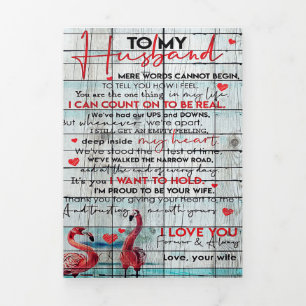 TO MY
Husband
MERE WORDS CANNOT BEGIN,
TO TELL YOU HOW I FEEL.
You are the one thing in my life
I CAN COUNT ON TO BE REAL.
We've had our UPS and DOWNS,
But whenever we're apart,
I STILL GET AN EMPTY FEELING,
deep inside my heart
We've stood the test of time,
WE'VE WALKED THE NARROW ROAD,
and at the end of every day
It's you I WANT TO HOLD.
I'M PROUD TO BE YOUR WIFE.
Thank you for giving your heart to me
And trusting me with yours
I LOVE YOU
Forever & Always
Love, your wife